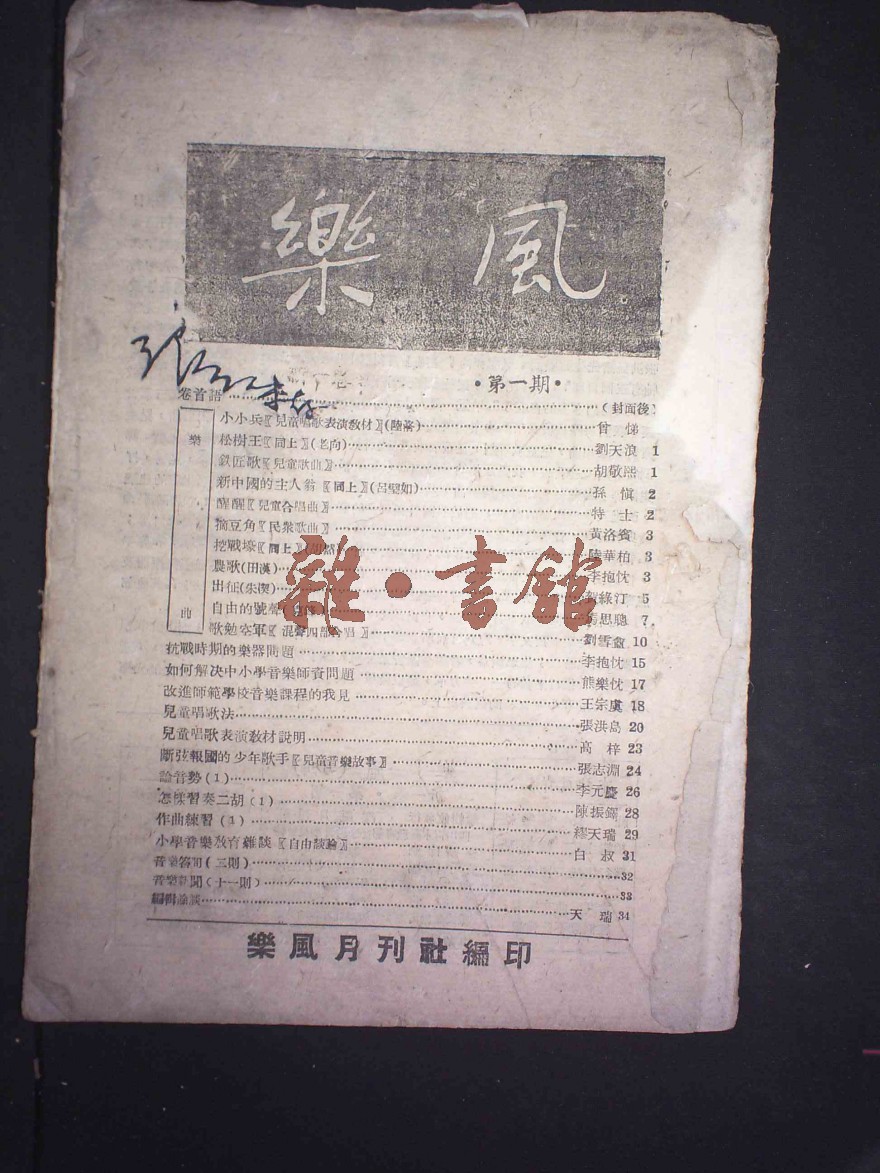 樂風
第一期
卷首語 (封面後)
樂曲
小小兵〖兒童唱歌表演教材〗(陸蠡) 曾悌
松樹王〖同上〗(老向) 劉天浪 1
鉄匠歌〖兒童歌曲〗 胡敬熙 1
新中國的主人翁〖同上〗(呂璧如) 孫愼 2
醒醒〖兒童合唱曲〗 特士 2
摘豆角〖民衆歌曲〗 黃洛賓 3
挖戰壕〖同上〗 陸華柏 3
農歌(田漢) 李抱忱 3
出征(朱偰) 賀綠汀 5
自由的號聲 馬思聰 7
歌勉空軍〖混聲四部合唱〗 劉雪盦 10
抗戰時期的樂器問題 李抱忱 15
如何解决中小學音樂師資問題 熊樂忱 17
改進師範學校音樂課程的我見 王宗虞 18
兒童唱歌法 張洪島 20
兒童唱歌表演敎材説明 高梓 23
斷弦報國的少年歌手〖兒童音樂故事〗 張志淵 24
論音勢(1) 李元慶 26
怎樣習奏二胡(1) 陳振鐸 28
作曲練習(1) 繆天瑞 29
小學音樂敎育雜談〖自由談論〗 白叔 31
音樂答問(三則) 32
音樂新聞(十一則) 33
編輯論談 天瑞 34
樂風月刊社編印
雜·書館